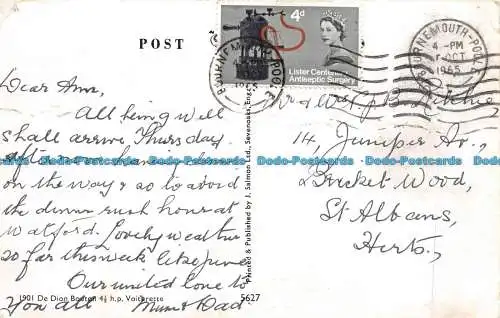 POST
4d
Lister Centenary
Antiseptic Surgery
BOURNEMOUTH-POOLE
4-PM
OCT
1965
Dear Ann,
All being well
shall arrive Thursday
afternoon,
on the way & so to avoid
the dinner rush hour at
Watford. Lovely weather
so far this week like June
Our united love to
you all Mum & Dad
Mr & Mrs
14, Juniper Av.,
Bricket Wood,
St Albans,
Herts,
Printed & Published by J. Salmon Ltd., Sevenoaks, Eng.
1901 De Dion Bouton 4½ h.p. Voiturette
5627
Dodo-Postcards Dodo-Postcards Dodo-Postcards Dodo-Postcards